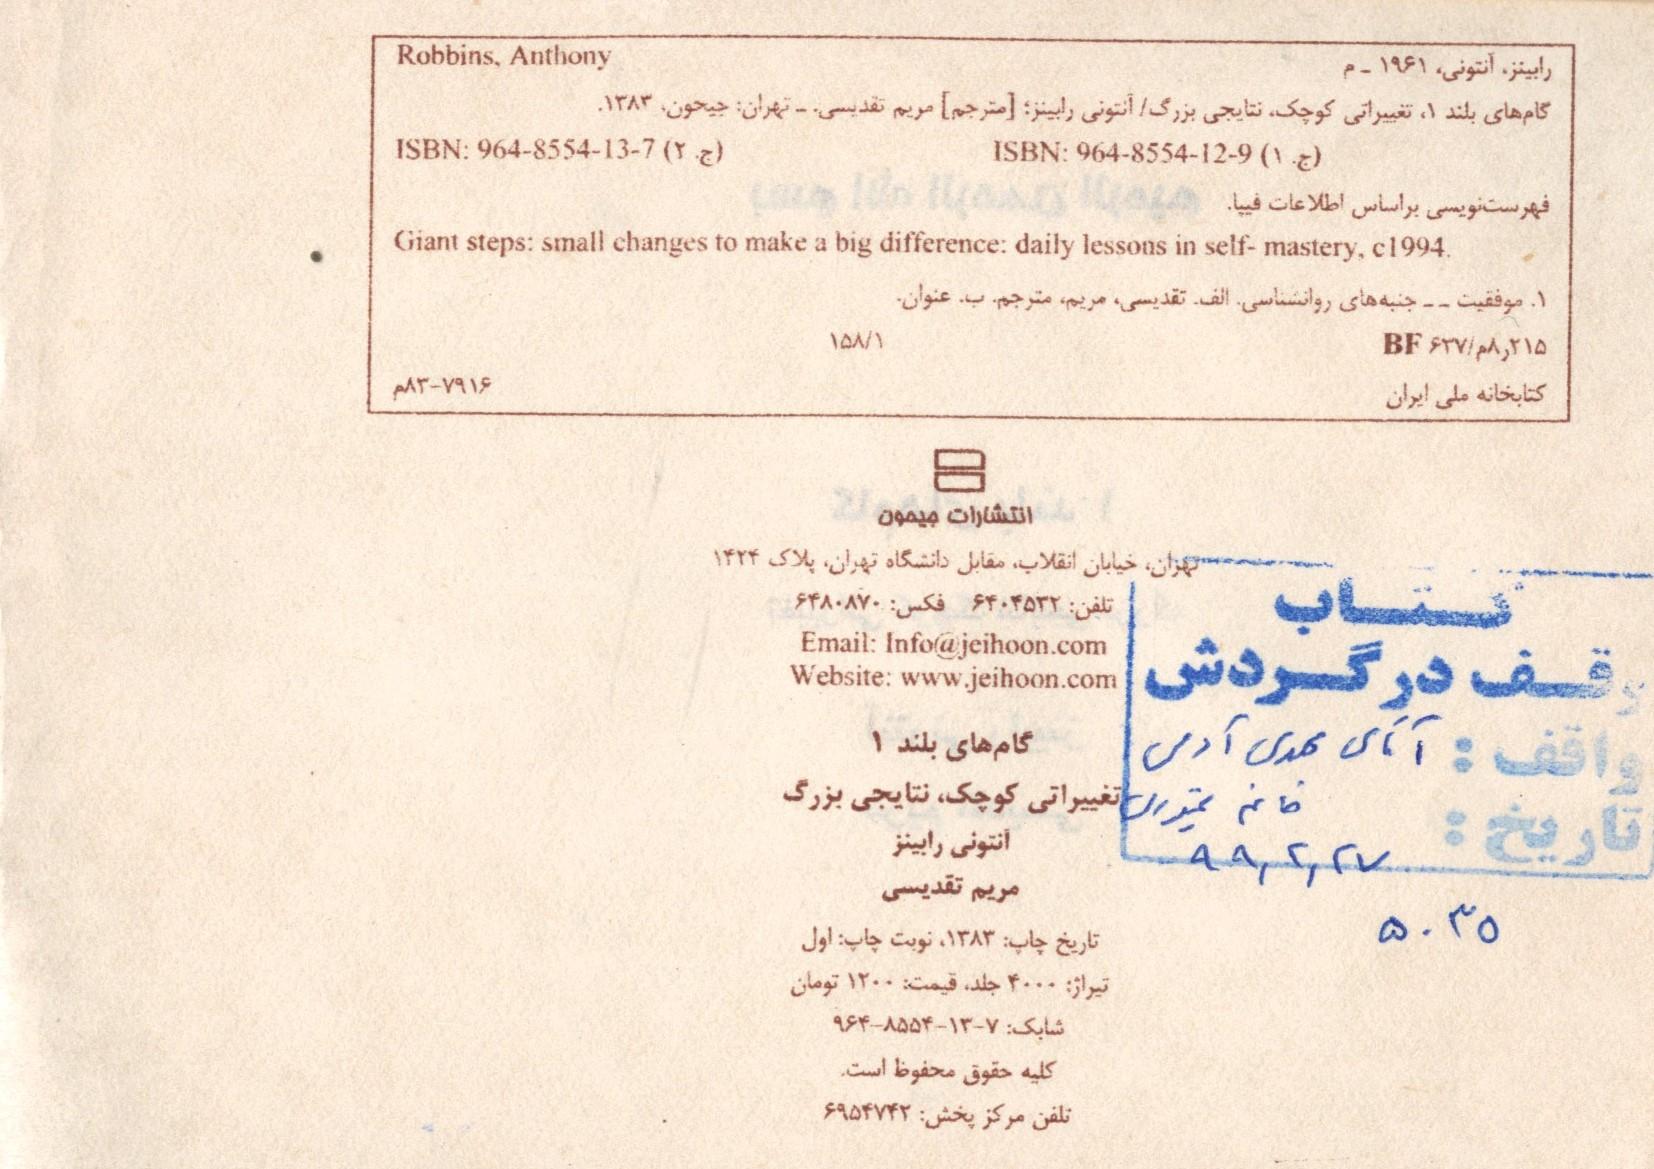 Robbins, Anthony
رابینز، آنتونی، ۱۹۶۱ ـ م
گام‌های بلند ۱، تغییراتی کوچک، نتایجی بزرگ/ آنتونی رابینز؛ [مترجم] مریم تقدیسی. ـ تهران: جیحون، ۱۳۸۳.
ISBN: 964-8554-12-9 (ج. ۱)
ISBN: 964-8554-13-7 (ج. ۲)
فهرست‌نویسی براساس اطلاعات فیپا.
Giant steps: small changes to make a big difference: daily lessons in self- mastery, c1994.
۱. موفقیت ـ ـ جنبه‌های روانشناسی. الف. تقدیسی، مریم، مترجم. ب. عنوان.
BF ۶۳۷/م۸ر۲۱۵
۱۵۸/۱
کتابخانه ملی ایران
م۸۳-۷۹۱۶
انتشارات جیحون
تهران، خیابان انقلاب، مقابل دانشگاه تهران، پلاک ۱۴۲۴
تلفن: ۶۴۰۴۵۳۲ فکس: ۶۴۸۰۸۷۰
Email: Info@jeihoon.com
Website: www.jeihoon.com
گام‌های بلند ۱
تغییراتی کوچک، نتایجی بزرگ
آنتونی رابینز
مریم تقدیسی
تاریخ چاپ: ۱۳۸۳، نوبت چاپ: اول
تیراژ: ۴۰۰۰ جلد، قیمت: ۱۲۰۰ تومان
شابک: ۷-۱۳-۸۵۵۴-۹۶۴
کلیه حقوق محفوظ است.
تلفن مرکز پخش: ۶۹۵۴۷۴۲
کتاب
وقف در گردش
واقف : آقای مهدی
خانم
تاریخ : ۹۹,۲,۲۷
۵۰۳۵